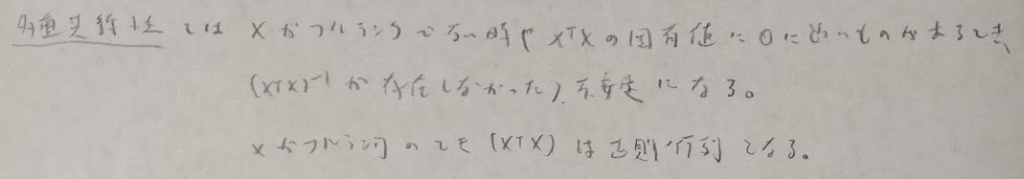 多重共線性とは Xがフルランクで無い時やXᵀXの固有値に0に近いものがあるとき、
(XᵀX)⁻¹が存在しなかったり、不安定になる。
Xがフルランクのとき(XᵀX)は正則行列となる。